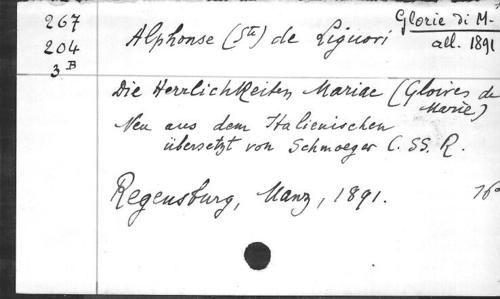 267
204
3 B
Alphonse (Ste) de Liguori
Glorie di M.
all. 1891
Die Herrlichkeiten Mariae (Gloires de
Marie)
Neu aus dem Italienischen
übersetzt von Schmoeger C. SS. R.
Regensburg, Manz, 1891.
16º